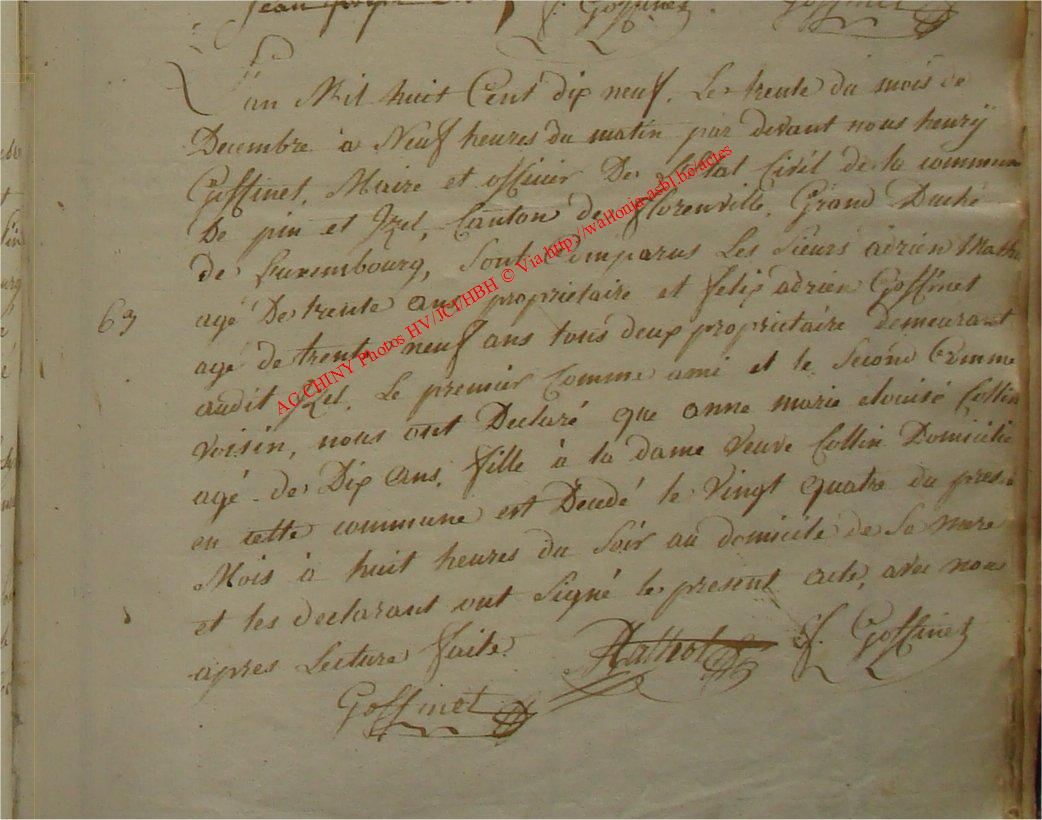 f. Goffinet Goffinet
L'an Mil huit Cent dix neuf. Le trente du mois de
Decembre à Neuf heures du matin par devant nous henrÿ
Goffinet, Maire et officier De l'Etat Civil de la commune
De pin et Izel, Canton de florenville, Grand Duché
de Luxembourg, Sont Comparus Les Sieurs adrien Matho
agé De trente ans proprietaire et felix adrien Goffinet
63
age de trente neuf ans tous deux proprietaire demeurant
audit Izel, Le premier Comme ami et le Second Comme
voisin, nous ont Declaré que anne marie elouise Collin
agé de Dix ans, fille à la dame veuve Collin Domicilié
en cette commune est Décedé le Vingt quatre du present
Mois à huit heures du Soir au domicile de Sa mere
et les declarant ont Signé le present acte, avec nous
apres Lecture faite.
Mathot f. Goffinet
Goffinet
AG CHINY Photos HV/JCI/HBH © Via http://wallonia-asbl.be/actes